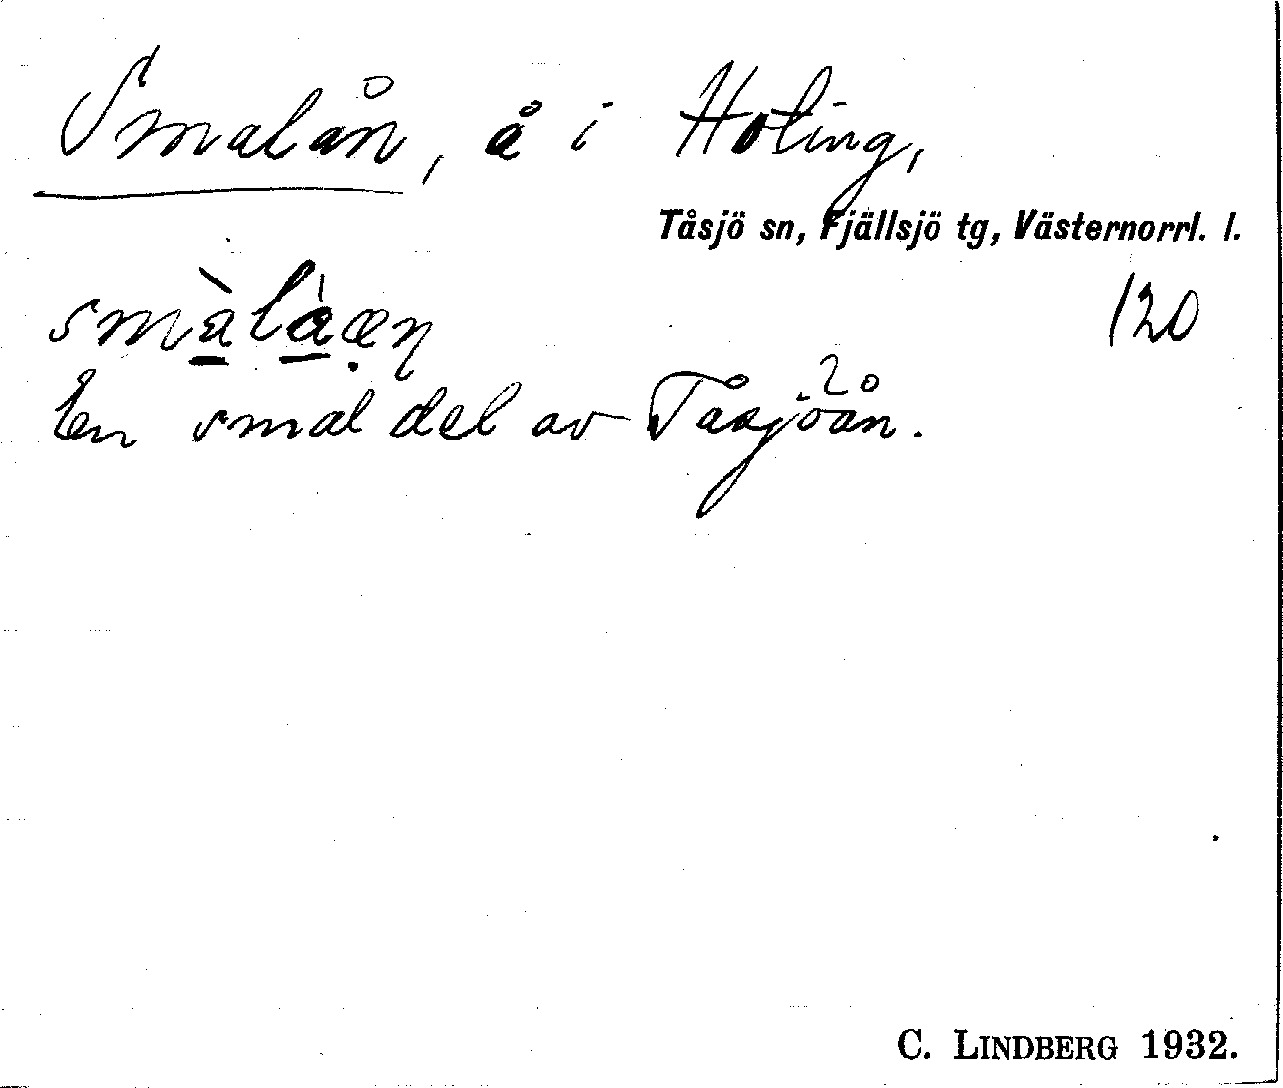 Smalån, å i Holing,
Tåsjö sn, Fjällsjö tg, Västernorrl. l.
120
En smal del av Tåsjöån.
C. LINDBERG 1932.